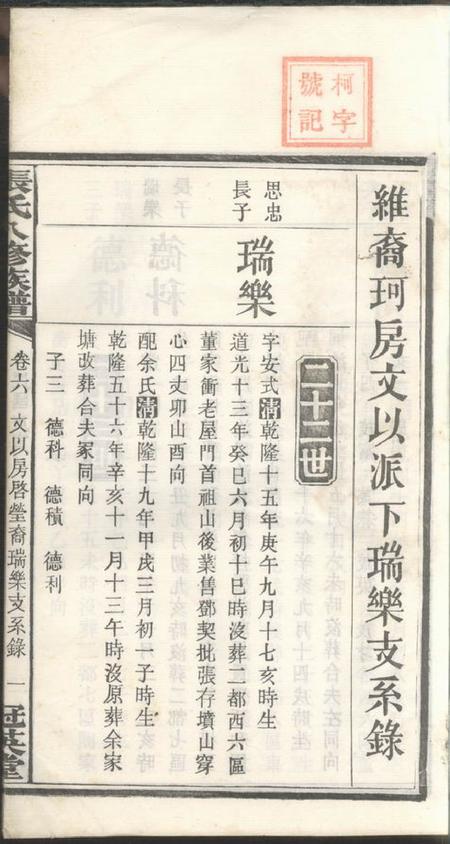 柯字
號記
維裔珂房文以派下瑞樂支系錄
二十二世
思忠
長子
瑞樂
字安式清乾隆十五年庚午九月十七亥時生
道光十三年癸巳六月初十巳時沒葬一都西六區
董家衝老屋門首祖山後業售鄧契批張存墳山穿
心四丈卯山酉向
配余氏清乾隆十九年甲戌三月初一子時生
乾隆五十六年辛亥十一月十三午時沒原葬余家
塘改葬合夫冢同向
子三 德科 德積 德利
張氏八修族譜
卷六 文以房啓瑩裔瑞樂支系錄 一
冠英堂